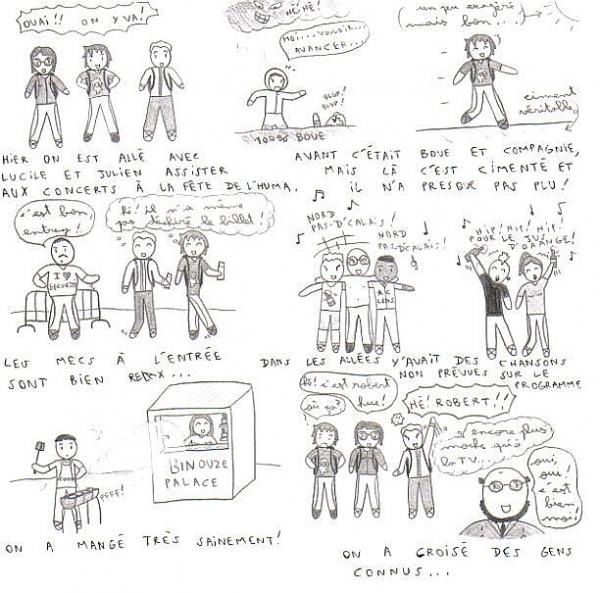 OUAI!! ON Y VA!
HIER ON EST ALLÉ AVEC
LUCILE ET JULIEN ASSISTER
AUX CONCERTS À LA FÊTE DE L'HUMA.
HÉ HÉ!
MOI... VOULOIR...
AVANCER...
BLUP!
BLUP!
BOUE
un peu exagéré
mais bon...
ciment
véritable
AVANT C'ÉTAIT BOUE ET COMPAGNIE,
MAIS LÀ C'EST CIMENTÉ ET
IL N'A PRESQUE PAS PLU!
c'est bon,
entrez!
hi! il n'a même
pas déchiré le billet!
I ♥
SECURITY
LES MECS À L'ENTRÉE
SONT BIEN RELAX...
NORD
PAS-D'CALAIS!
NORD
PAS-D'CALAIS!
RC
LENS
HIP! HIP! HIP!
POUR LE JUS
D'ORANGE!
DANS LES ALLÉES Y'AVAIT DES CHANSONS
NON PRÉVUES SUR LE
PROGRAMME
COOK
PFFF!
BINOUZE
PALACE
ON A MANGÉ TRÈS SAINEMENT!
hé! c'est robert
hue!
où ça?
HÉ! ROBERT!!
encore plus
moche qu'à
la TV...
oui,
oui!
c'est
bien
moi!
ON A CROISÉ DES GENS
CONNUS...